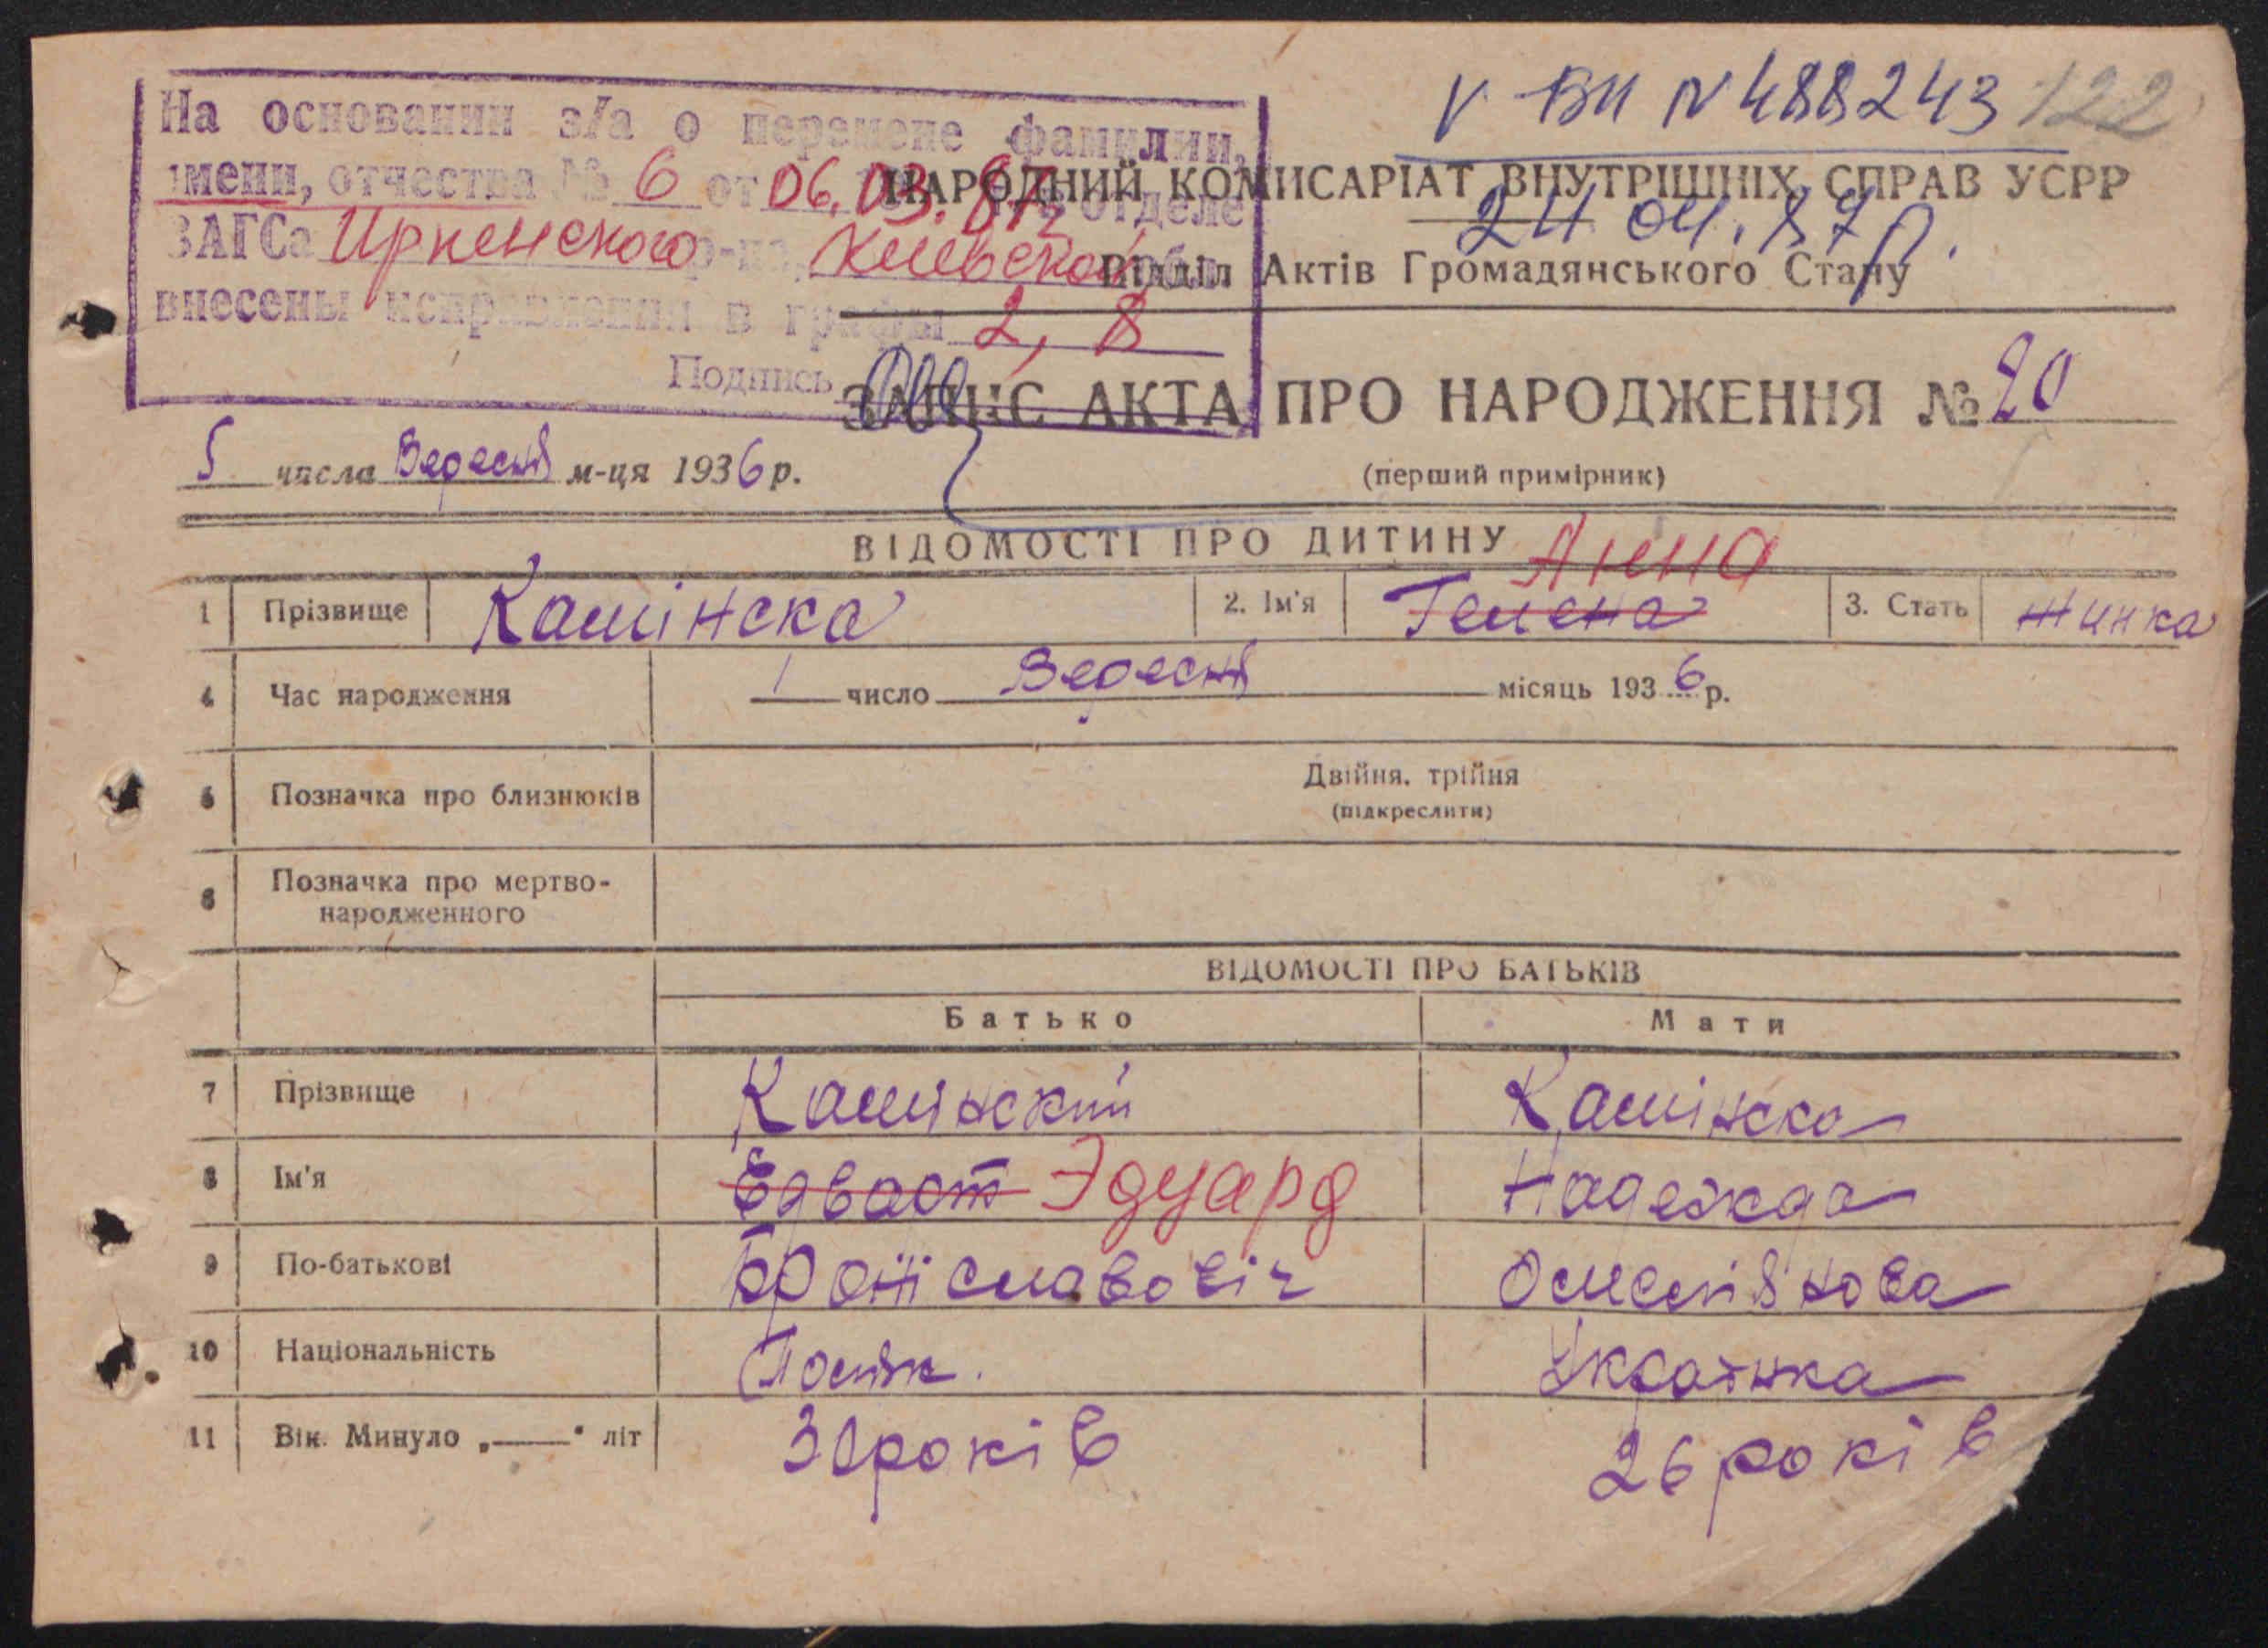 V-БК N 488243 122
24 04.87р.
На основании з/а о перемене фамилии,
имени, отчества № 6 от 06.03.87г. в отделе
ЗАГСа Ирпенского р-на, Киевской обл.
внесены исправления в графы 2, 8
Подпись
НАРОДНИЙ КОМИСАРІАТ ВНУТРІШНІХ СПРАВ УСРР
Відділ Актів Громадянського Стану
ЗАПИС АКТА ПРО НАРОДЖЕННЯ № 20
5 числа Вересня м-ця 1936 р.
(перший примірник)
ВІДОМОСТІ ПРО ДИТИНУ
Анна
1 Прізвище Камінска 2. Ім'я Гелена 3. Стать жинка
4 Час народження 1 число Вересня місяць 1936 р.
5 Позначка про близнюків Двійня, трійня
(підкреслити)
6 Позначка про мертво-
народженного
ВІДОМОСТІ ПРО БАТЬКІВ
Батько Мати
7 Прізвище Камінский Камінска
8 Ім'я Едваот Эдуард Надежда
9 По-батькові Броніславовіч Омелянова
10 Національність Поляк. Украінка
11 Вік. Минуло „—" літ 30 років 26 років